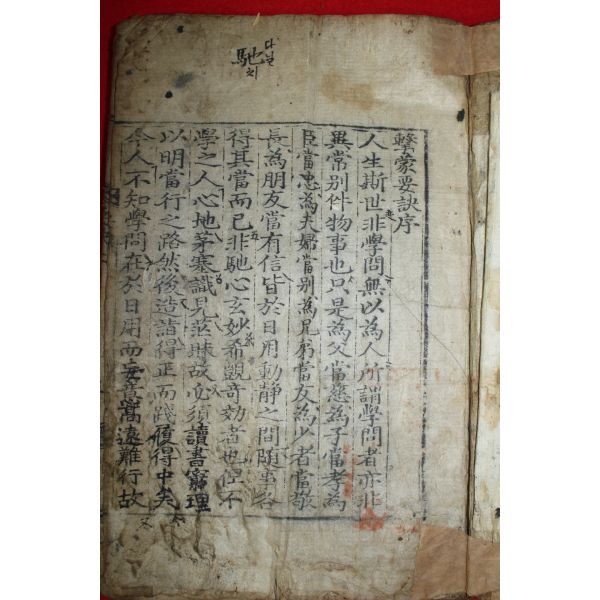 馳
다닐
치
擊蒙要訣序
人生斯世非學問無以為人所謂學問者亦非
異常別件物事也只是為父當慈為子當孝為
臣當忠為夫婦當別為兄弟當友為少者當敬
長為朋友當有信皆於日用動靜之間隨事各
得其當而已非馳心玄妙希覬奇効者也但不
學之人心地茅塞識見茫昧故必須讀書窮理
以明當行之路然後造詣得正而踐履得中矣
今人不知學問在於日用而妄意高遠難行故